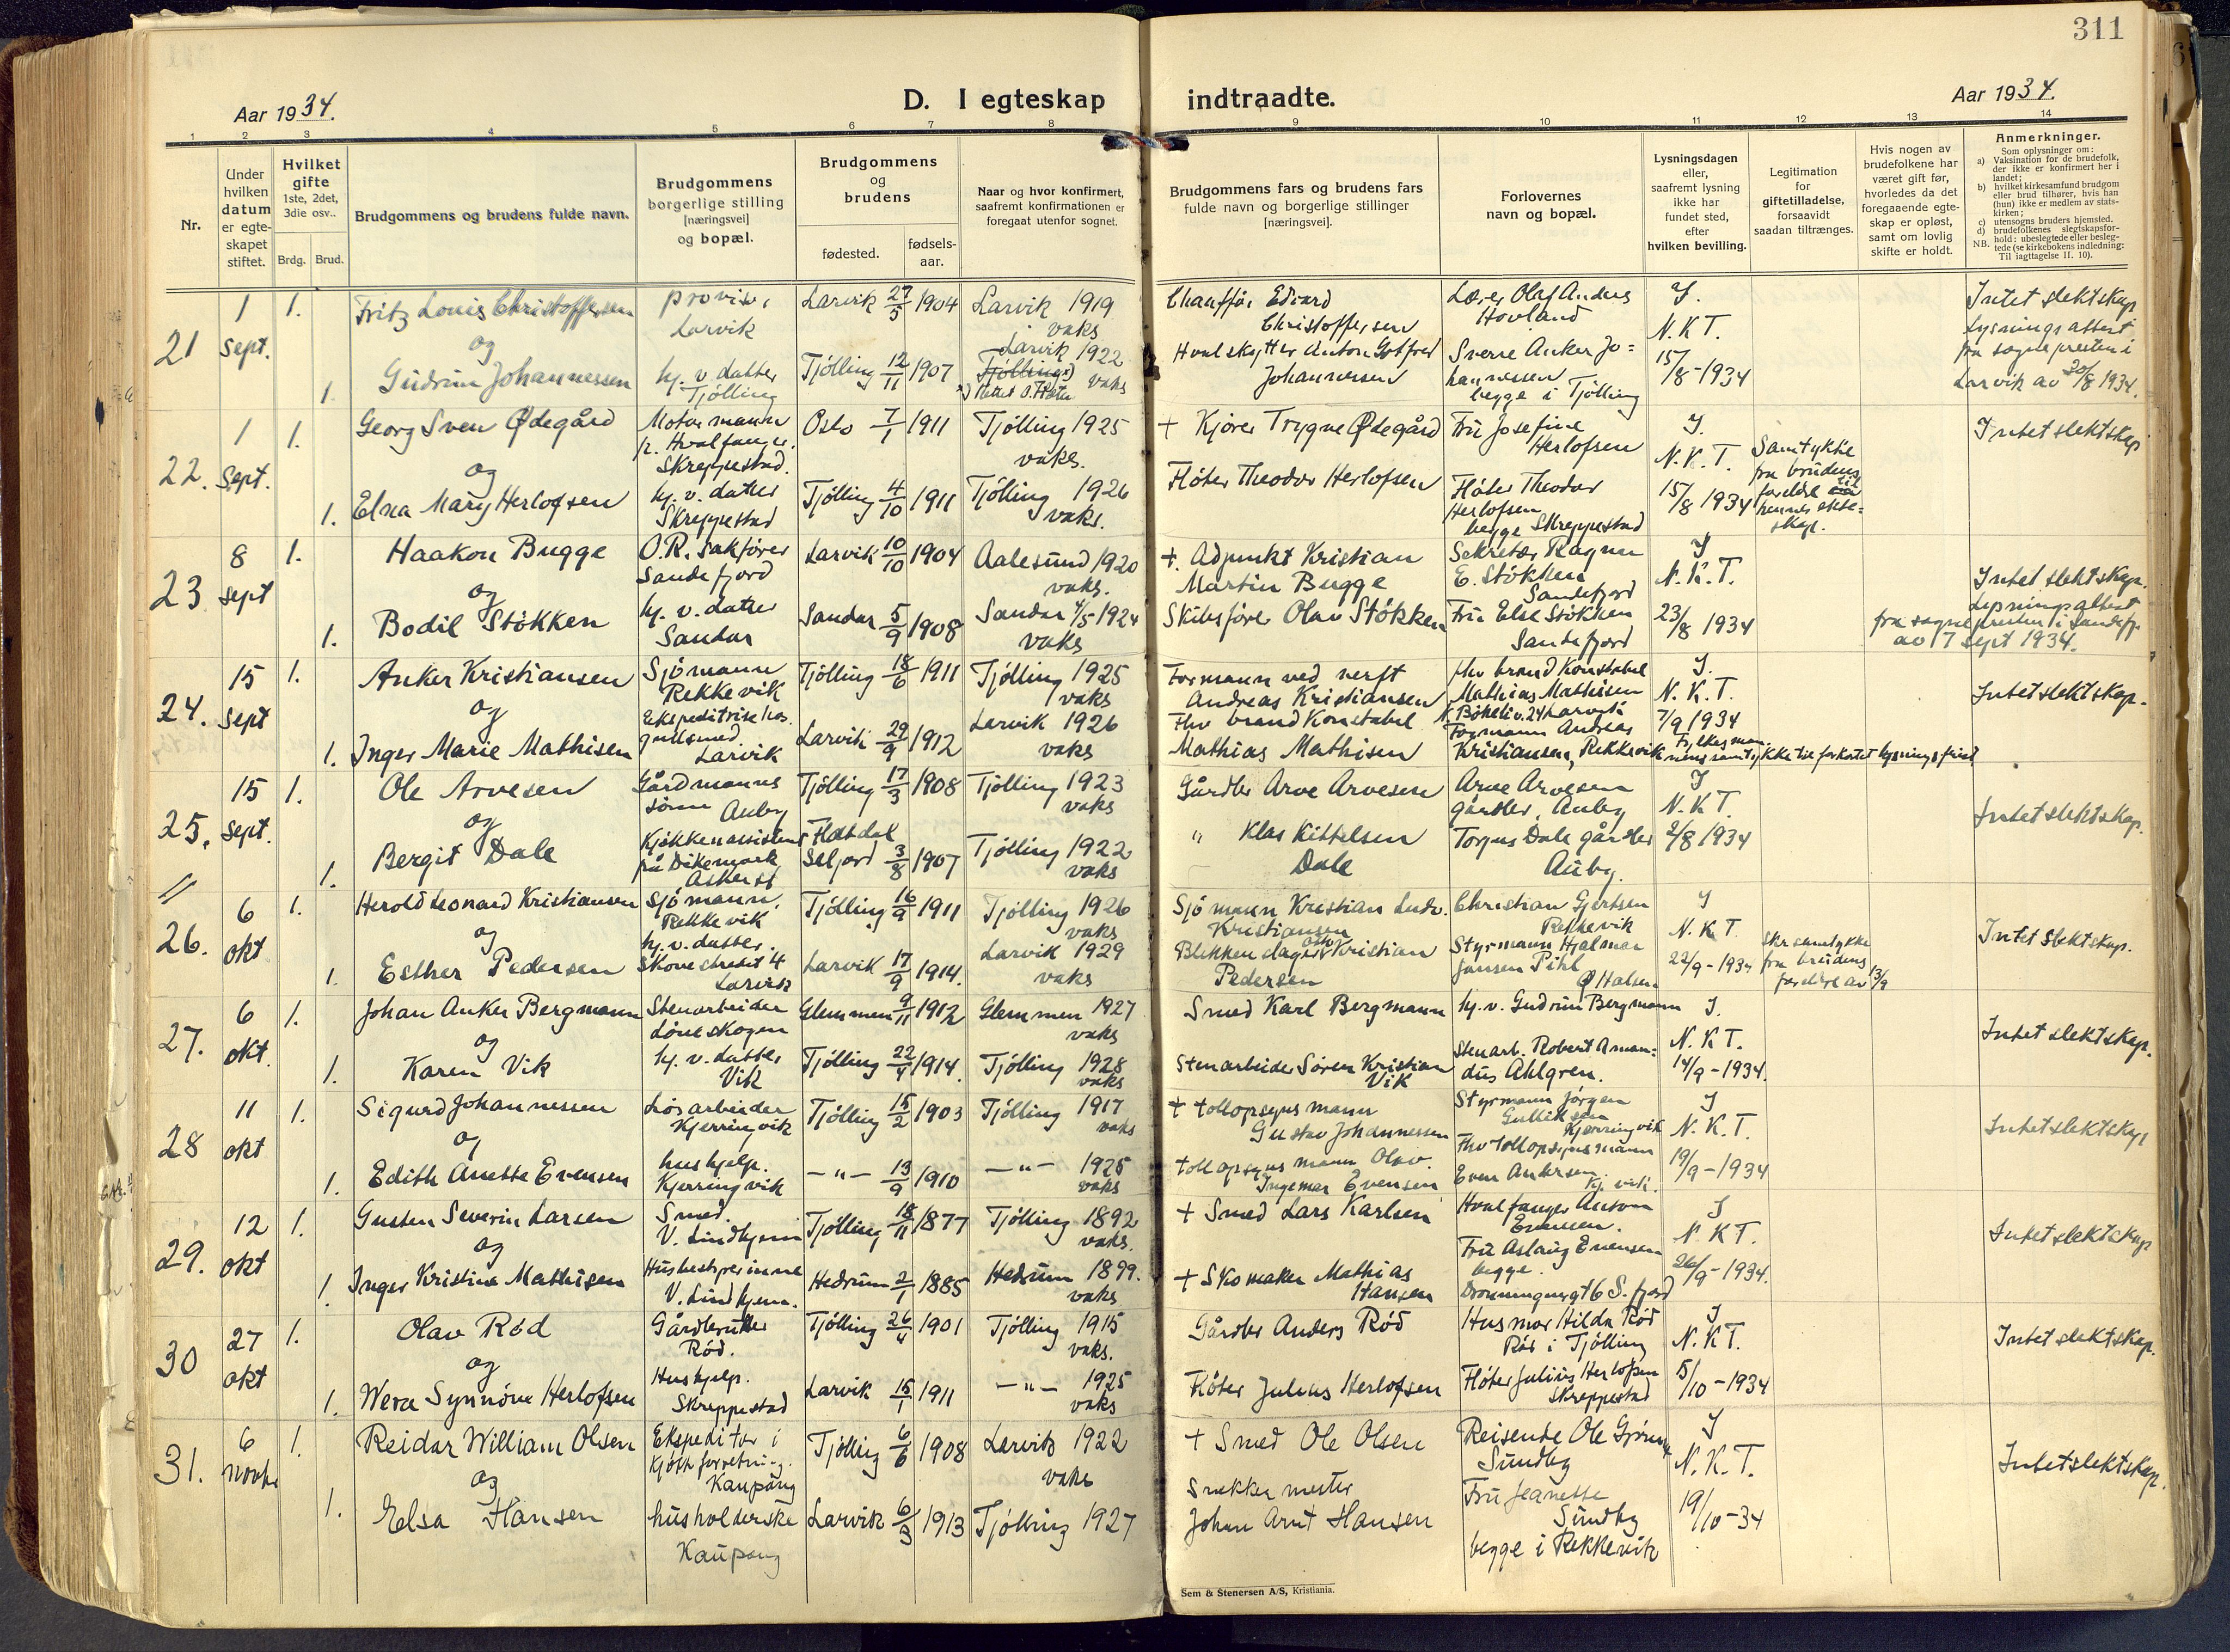 311
Aar 1934.
D. I egteskap
indtraadte.
Aar 1934.
1 2 3 4 5 6 7 8 9 10 11 12 13 14
Nr.
Under
hvilken
datum
er egte-
skapet
stiftet.
Hvilket
gifte
1ste, 2det,
3die osv..
Brdg. Brud.
Brudgommens og brudens fulde navn.
Brudgommens
borgerlige stilling
[næringsvei]
og bopæl.
Brudgommens
og
brudens
fødested.
fødsels-
aar.
Naar og hvor konfirmert,
saafremt konfirmationen er
foregaat utenfor sognet.
Brudgommens fars og brudens fars
fulde navn og borgerlige stillinger
[næringsvei].
Forlovernes
navn og bopæl.
Lysningsdagen
eller,
saafremt lysning
ikke har
fundet sted,
efter
hvilken bevilling.
Legitimation
for
giftetilladelse,
forsaavidt
saadan tiltrænges.
Hvis nogen av
brudefolkene har
været gift før,
hvorledes da det
foregaaende egte-
skap er opløst,
samt om lovlig
skifte er holdt.
Anmerkninger.
Som oplysninger om:
a) Vaksination for de brudefolk,
der ikke er konfirmert her i
landet;
b) hvilket kirkesamfund brudgom
eller brud tilhører, hvis han
(hun) ikke er medlem av stats-
kirken;
c) utensogns bruders hjemsted.
d) brudefolkenes slegtskapsfor-
hold: ubeslegtede eller besleg-
NB. tede (se kirkebokens indledning:
Til iagttagelse II. 10).
21
1
Sept.
1.
1.
Fritz Louis Christoffersen
og
Gudrun Johannessen
provisor
Larvik
hj. v. datter
Tjölling
Larvik 27/5 1904
Tjölling 12/11 1907
Larvik 1919
vaks
Larvik 1922
Tjölling
vaks
Chauffør Edvard
Christoffersen
Hvalskytter Anton Gotfred
Johannessen
Lærer Olaf Anders
Hovland
Sverre Anker Jo=
hannessen
begge i Tjölling
J.
N.K.T.
15/8-1934
Intet slektskap
Lysningsattest
fra sognepresten i
Larvik av 30/8 1934.
22.
1
Sept.
1.
1.
Georg Sven Ødegård
og
Elna Mary Herlofsen
Motormann
p. Hvalfanger.
Skreppestad.
hj. v. datter
Skreppestad
Oslo 7/1 1911
Tjölling 4/10 1911
Tjölling 1925
vaks.
Tjölling 1926
vaks.
+ Kjører Trygve Ødegård
Fløter Theodor Herlofsen
Fru Josefine
Herlofsen
Fløter Theodor
Herlofsen
begge Skreppestad
J.
N.K.T.
15/8 1934
Samtykke
fra brudens
foreldre til
hennes ekte=
skap.
Intet slektskap
23
8
sept
1.
1.
Haakon Bugge
og
Bodil Stökken
O.R. sakfører
Sandefjord
hj. v. datter
Sandar
Larvik 10/10 1904
Sandar 5/9 1908
Aalesund 1920
vaks.
Sandar 4/5 1924
vaks
+. Adjunkt Kristian
Martin Bugge
Skibsfører Olav Stökken
Sekretær Ragnar
E. Stökken
Sandefjord
Fru Else Stökken
Sandefjord
J
N.K.T.
23/8 1934
Intet slektskap.
Lysningsattest
fra sognepresten i Sandefj.
av 17 sept 1934.
24.
15
Sept
1.
1.
Anker Kristiansen
og
Inger Marie Mathisen
Sjömann
Rekkevik
Ekspeditrise hos
gullsmed
Larvik
Tjölling 18/6 1911
Larvik 29/9 1912
Tjölling 1925
vaks
Larvik 1926
vaks
Formann ved verft
Andreas Kristiansen
Fhv brand Konstabel
Mathias Mathisen
fhv brand Konstabel
Mathias Mathisen
N. Bökeliv. 24 Larvik
Formann Andreas
Kristiansen, Rekkevik
J.
N.K.T.
7/9 1934
Fylkesman
nens samtykke til forkortet lysningsfrist
Intet slektskap.
25.
15
Sept.
1.
1.
Ole Arvesen
og
Bergit Dale
Gårdmanns
sönn Auby
Kjøkkenassistent
på Dikemark
Asker st
Tjölling 17/3 1908
Flatdal
Seljord 3/8 1907
Tjölling 1923
vaks
Tjölling 1922
vaks
Gårdbr Arve Arvesen
" Klas Kittelsen
Dale
Arve Arvesen
gårdbr, Auby
Torjus Dale gårdbr
Auby.
J
N.K.T.
2/8 1934
Intet slektskap.
26.
6
okt
1.
1.
Herold Leonard Kristiansen
og
Esther Pedersen
Sjömann.
Rekkevik
hj. v. datter.
Skovestredet 4
Larvik
Tjölling 16/9 1911
Larvik 17/9 1914.
Tjölling 1926
vaks
Larvik 1929
vaks
Sjömann Kristian Ludv.
Kristiansen
Blikkenslager Kristian
Pedersen
Christian Gjertsen
Rekkevik
Styrmann Hjalmar
Jansen Pihl
Ø Halsen
J
N.K.T.
22/9-1934
Skr samtykke
fra brudens
foreldre av 13/9
Intet slektskap.
27.
6
okt.
1.
1.
Johan Anker Bergmann
og
Karen Vik
Stenarbeider
Löveskogen
hj. v. datter
Vik
Glemmen 9/11 1912
Tjölling 22/4 1914.
Glemmen 1927
vaks
Tjölling 1928
vaks
Smed Karl Bergmann
Stenarbeider Sören Kristian
Vik
hj. v. Gudrun Bergmann
Stenarb. Robert Aman=
dus Ahlgren.
J.
N.K.T.
14/9-1934.
Intet slektskap.
28
11
okt
1.
1.
Sigurd Johannessen
og
Edith Anette Evensen
Lösarbeider
Kjerringvik
hushjelp.
Kjerringvik
Tjölling 15/2 1903
—"— 13/9 1910
Tjölling 1917
vaks
—"— 1925
vaks
+ tollopsynsmann
Gustav Johannessen
tollopsynsmann Olav.
Ingemar Evensen
Styrmann Jörgen
Gulliksen
Kjerringvik
Fhv tollopsynsmann
Even Andersen.
Kj. vik.
J
N.K.T.
19/9-1934
Intet slektskap
29.
12
okt
1.
1.
Gusten Severin Larsen
og
Inger Kristine Mathisen
Smed.
V. Lindhjem
Husbestyrerinne
V. Lindhjem.
Tjölling 18/11 1877
Hedrum 2/1 1885
Tjölling 1892
vaks.
Hedrum 1899.
vaks
+ Smed Lars Karlsen
+ Skomaker Mathias
Hansen
Hvalfanger Anton
Evensen.
Fru Aslaug Evensen
begge.
Dronningensgt 6 S.fjord
J
N.K.T.
26/9-1934.
Intet slektskap
30
27
okt
1.
1.
Olav Röd
og
Wera Synnöve Herlofsen
Gårdbruker
Röd.
Hushjelp.
Skreppestad
Tjölling 26/4 1901
Larvik 15/1 1911
Tjölling 1915
vaks.
—"— 1925
vaks
Gårdbr Anders Röd
Flöter Julius Herlofsen
Husmor Hilda Röd
Röd i Tjölling
Flöter Julius Herlofsen
Skreppestad
J
N.K.T.
5/10-1934
Intet slektskap.
31.
6
novbr
1.
1.
Reidar William Olsen
og
Elsa Hansen
Ekspeditör i
Kjöttforretning.
Kaupang
husholderske
Kaupang
Tjölling 6/6 1908
Larvik 6/3 1913
Larvik 1922
vaks
Tjölling 1927
+ Smed Ole Olsen
Snekkermester
Johan Arnt Hansen
Reisende Ole
Sundby
Fru Jeanette
Sundby
begge i Rekkevik
J
N.K.T.
19/10-34
Intet slektskap.
Sem & Stenersen A/S, Kristiania.